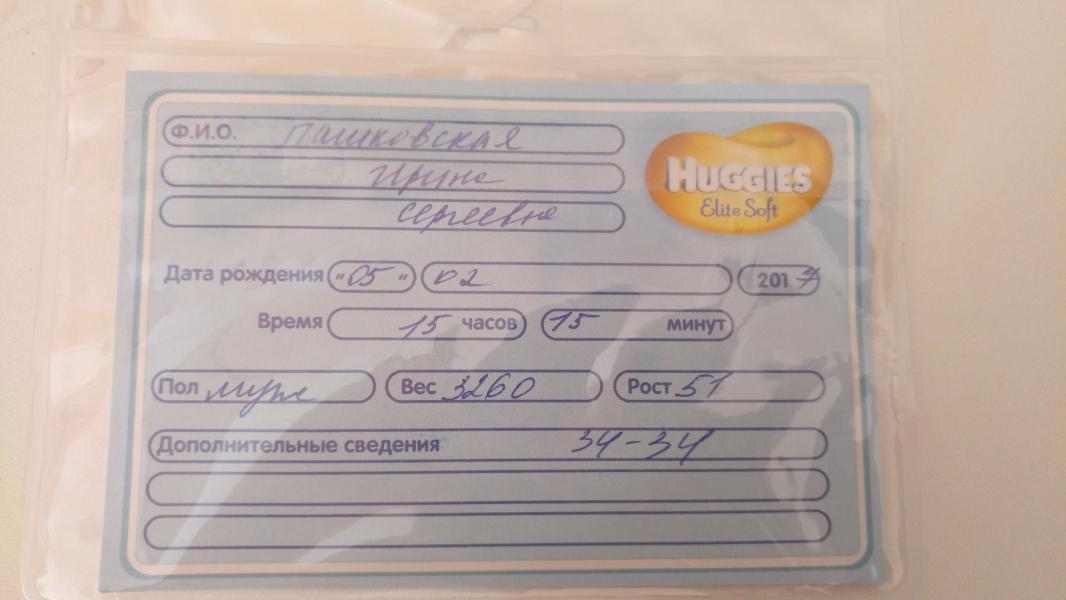 Ф.И.О. Пашковская
Ирина
Сергеевна
HUGGIES
Elite Soft
Дата рождения "05" 02 2017
Время 15 часов 15 минут
Пол муж Вес 3260 Рост 51
Дополнительные сведения 34-34